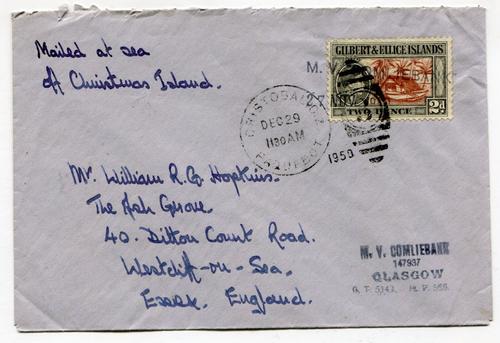 Mailed at sea
Off Christmas Island.
GILBERT & ELLICE ISLANDS
M. V. COMLIEBANK
TWO PENCE
2d
CRISTOBAL, C.Z.
DEC 29
1130 AM
PAQUEBOT
1950
Mr. William R.G. Hopkins.
The Ash Grove
40. Ditton Court Road.
Westcliff-on-Sea.
Essex. England.
M. V. COMLIEBANK
147937
GLASGOW
G. T. 5149. H. P.